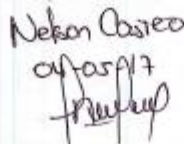 Nelson Castro
04-05-17